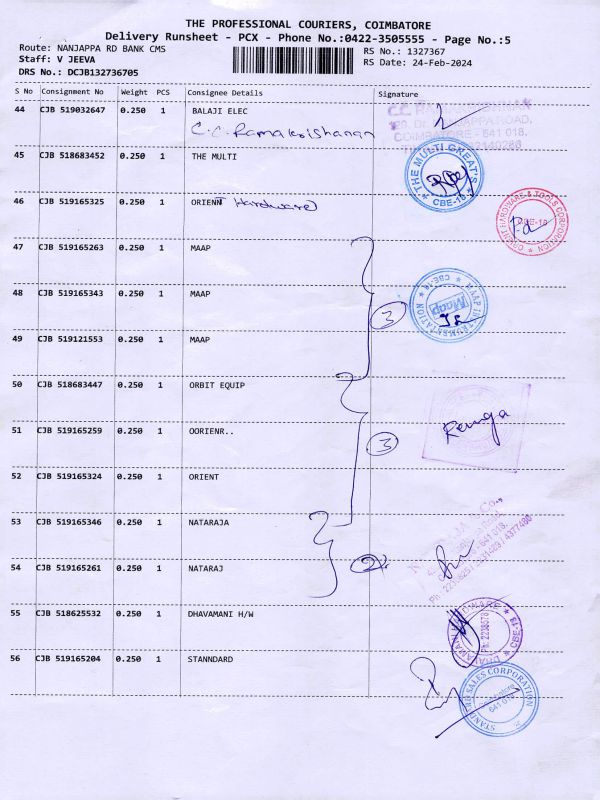 THE PROFESSIONAL COURIERS, COIMBATORE
Delivery Runsheet - PCX - Phone No.:0422-3505555 - Page No.:5
Route: NANJAPPA RD BANK CMS
RS No.: 1327367
Staff: V JEEVA
RS Date: 24-Feb-2024
DRS No.: DCJB132736705
S No Consignment No Weight PCS Consignee Details Signature
44 CJB 519032647 0.250 1 BALAJI ELEC
C.C. Ramakrishanan
COIMBATORE - 641 018.
45 CJB 518683452 0.250 1 THE MULTI
★ THE MULTI GREAT'S ★ CBE-18
46 CJB 519165325 0.250 1 ORIENT Hardware
ORIENT HARDWARE & TOOLS CORPORATION ★ CBE-18
47 CJB 519165263 0.250 1 MAAP
48 CJB 519165343 0.250 1 MAAP
3
Maap
CBE-18
49 CJB 519121553 0.250 1 MAAP
50 CJB 518683447 0.250 1 ORBIT EQUIP
51 CJB 519165259 0.250 1 OORIENR..
3
Renga
52 CJB 519165324 0.250 1 ORIENT
53 CJB 519165346 0.250 1 NATARAJA
54 CJB 519165261 0.250 1 NATARAJ
2
55 CJB 518625532 0.250 1 DHAVAMANI H/W
Ph: 2238578
CBE-18
56 CJB 519165204 0.250 1 STANNDARD
STANDARD SALES CORPORATION
Coimbatore
641 018